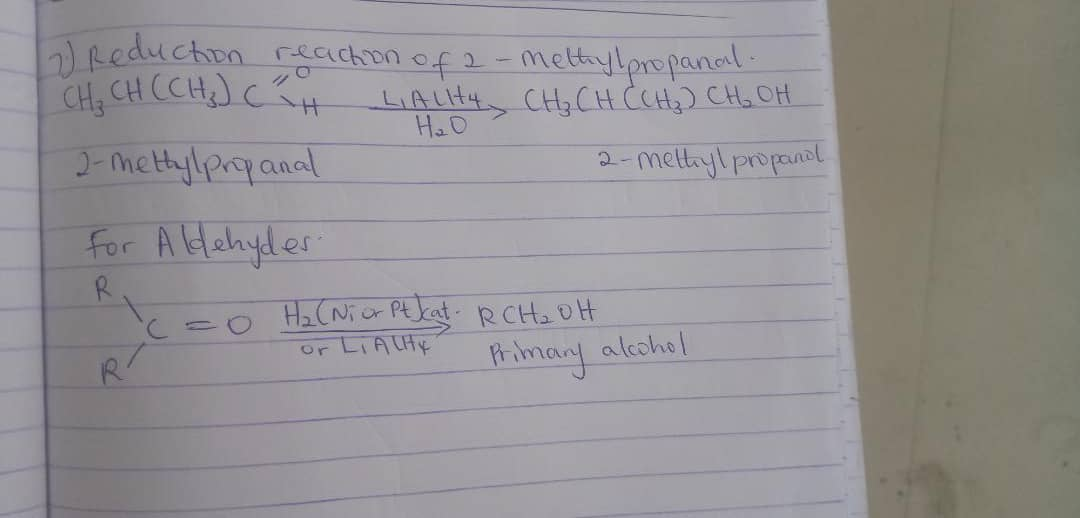 2) Reduction reaction of 2-methylpropanal.
CH3 CH(CH3) C =O H LiAlH4 H2O → CH3CH(CH3)CH2OH
2-methylpropanal 2-methylpropanol
For Aldehydes.
R
C = O H2(Ni or Pt)cat. or LiAlH4 → RCH2OH
R' Primary alcohol